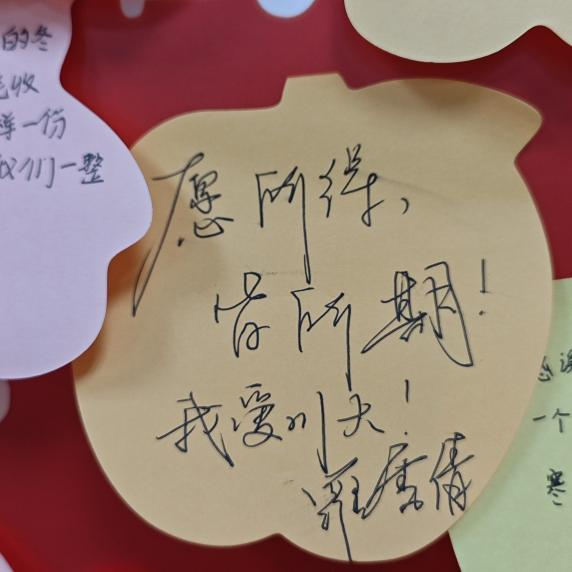 的冬
收
一份
我们一整
愿所得,
皆所期!
我爱川大!
感谢
一个
寒